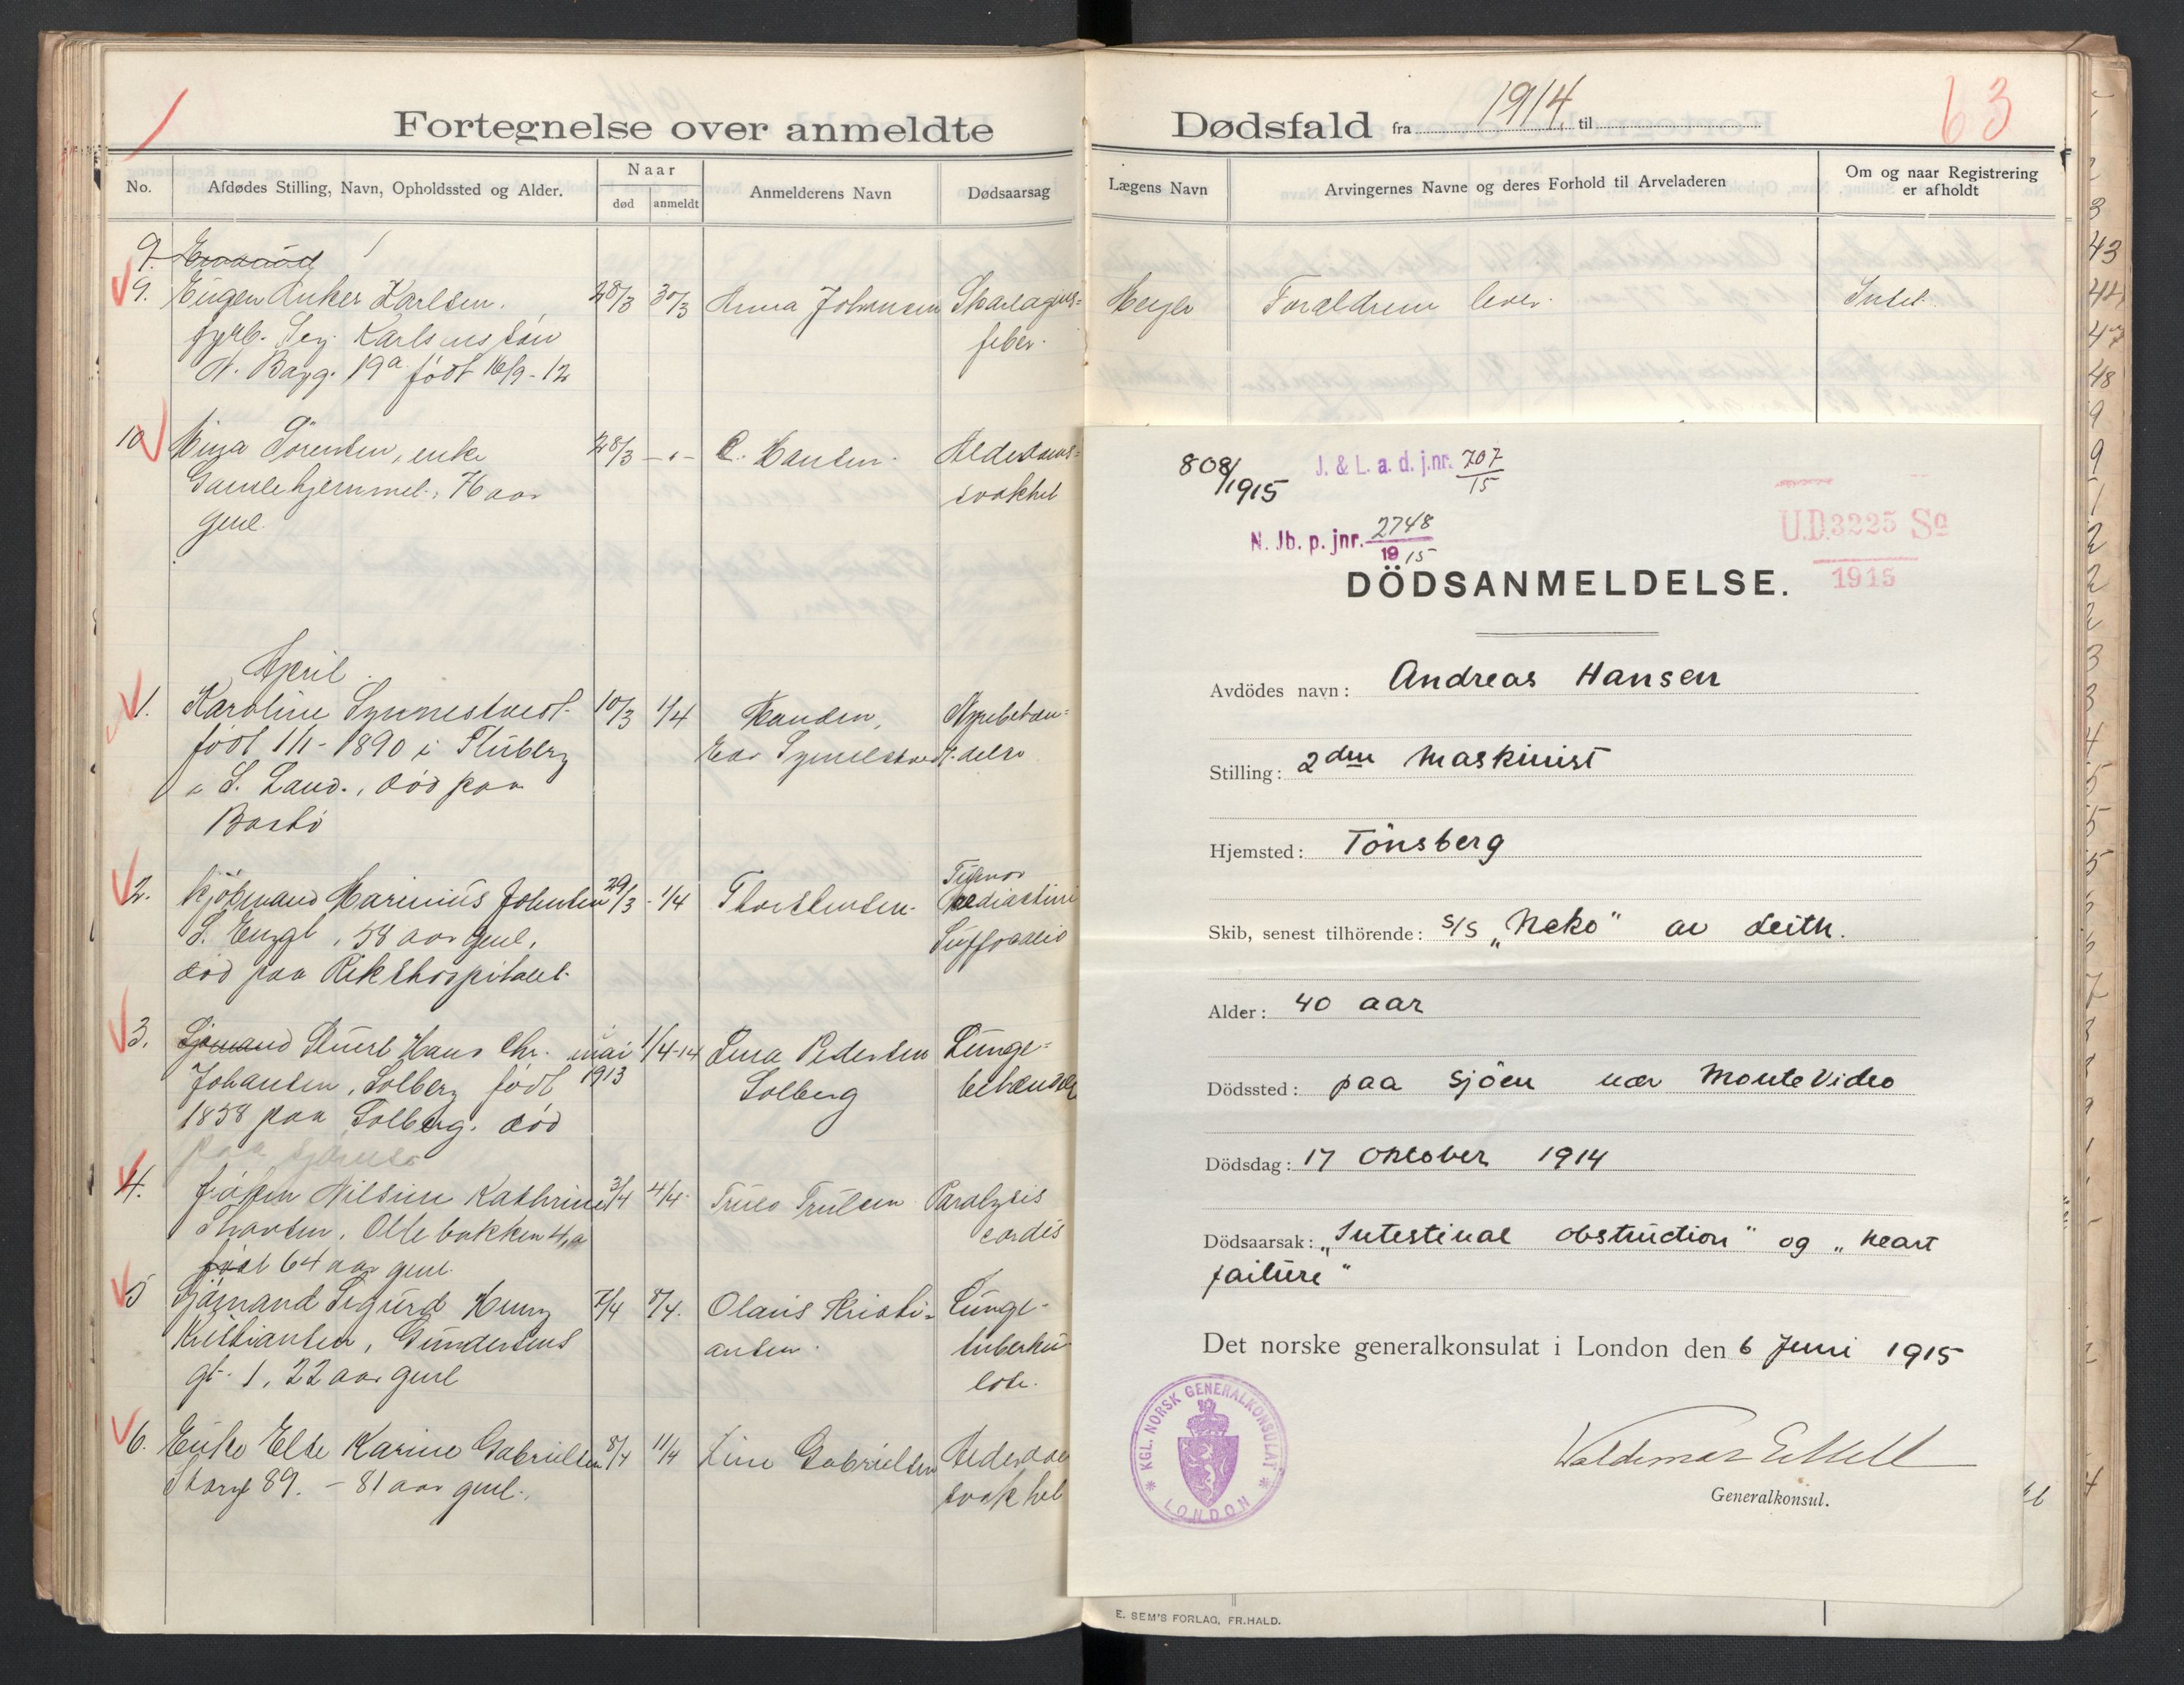 Fortegnelse over anmeldte
No.
Afdødes Stilling, Navn, Opholdssted og Alder.
Naar
død
anmeldt
Anmelderens Navn
Dødsaarsag
9.
9. Eugen Anker Karlsen. 28/3 30/3 Anna Johansen Skarlagens=
fyrb. Karlsens sön feber.
N. Bagg. 19a född 16/9-12
10 Mina Sörensen, enke 28/3 -"- C. Hansen. Alderdoms=
Gamlehjemmet. 76 aar svakhet
gml.
April
1. Karoline Synnestvedt. 10/3 1/4 Nyrebetæn=
födt 1/1-1890 i Fluberg delse
S. Land., död paa
Bastö
2. Kjöbmand Marinius Johnsen 29/3 1/4 Thorstensen. Tumor
mediastini
S. Enggt, 58 aar gml, Suffocatio
död paa Rikshospitalet.
3. Sjömand Stuert Hans Chr. mai 1/4-14 Lina Pedersen Lunge=
Johansen, Solberg födt 1913 Solberg betændelse
1858 paa Solberg. död
paa sjöreise
4. fröken Nilsine Kathrine 3/4 4/4 Truls Trulsen Paralysis
Thorsen, Ollebakken 4a cordis
födt 64 aar gml.
5 Sjömand Sigurd Henry 7/4 8/4. Olaus Kristi= Lunge-
Kristiansen, Gundersens ansen. tuberku
gt. 1, 22 aar gml lose.
6. Enke Else Karine Gabrielsen 8/4 11/4 Line Gabrielsen Alderdoms
Storgt 89. - 81 aar gml. svakhet
Dødsfald fra 1914 til
63
Lægens Navn
Arvingernes Navne og deres Forhold til Arveladeren
Om og naar Registrering
er afholdt
Heyer Forældrene lever. Intet.
808/1915
J. & L. a. d. j.nr. 707/15
N. Jb. p. jnr. 2748/1915
U.D. 3225 So
1915
DÖDSANMELDELSE.
Avdödes navn: Andreas Hansen
Stilling: 2den Maskinist
Hjemsted: Tönsberg
Skib, senest tilhörende: S/S "Neko" av Leith.
Alder: 40 aar
Dödssted: paa sjöen nær Monte Video
Dödsdag: 17 Oktober 1914
Dödsaarsak: "Intestinal obstruction" og "heart
failure"
Det norske generalkonsulat i London den 6 Juni 1915
KGL. NORSK GENERALKONSULAT
LONDON
Generalkonsul.
E. SEM'S FORLAG, FR.HALD.